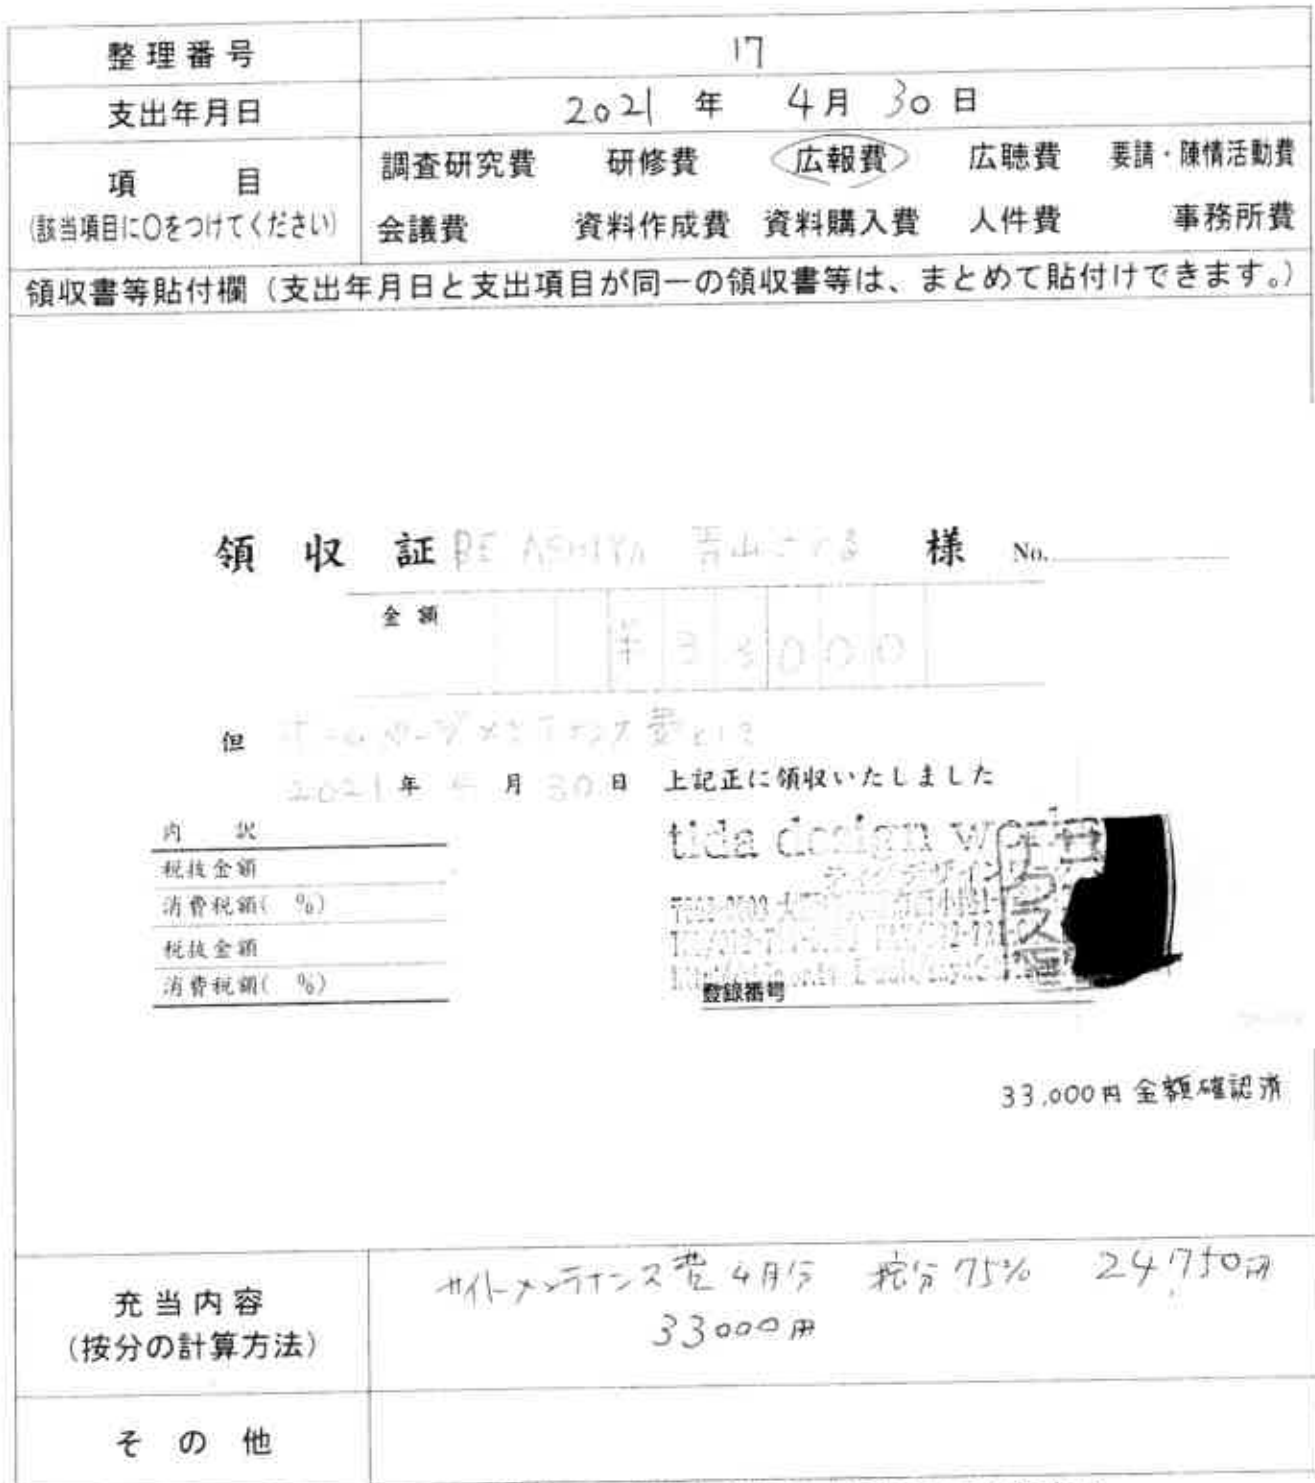 整理番号 17
支出年月日 2021 年 4月 30 日
項 目
(該当項目に○をつけてください)
調査研究費 研修費 広報費 広聴費 要請・陳情活動費
会議費 資料作成費 資料購入費 人件費 事務所費
領収書等貼付欄（支出年月日と支出項目が同一の領収書等は、まとめて貼付けできます。）
領 収 証 BE ASHIYA 青山 様 No.
金額
¥33000
但 ホームページメンテナンス費として
2021年 4月 30日 上記正に領収いたしました
内 訳
税抜金額
消費税額( %)
税抜金額
消費税額( %)
tida design works
登録番号
33,000円 金額確認済
充当内容
(按分の計算方法)
サイトメンテナンス費 4月分 按分 75% 24,750円
33000円
そ の 他